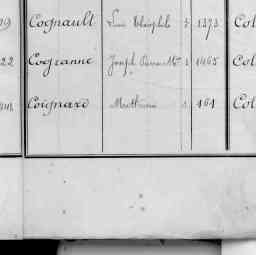 99 Cognault Louis Théophile 3 1373 Col
22 Cogranne Joseph 1 1465 Col
Coignard Mathurin 1 461 Col